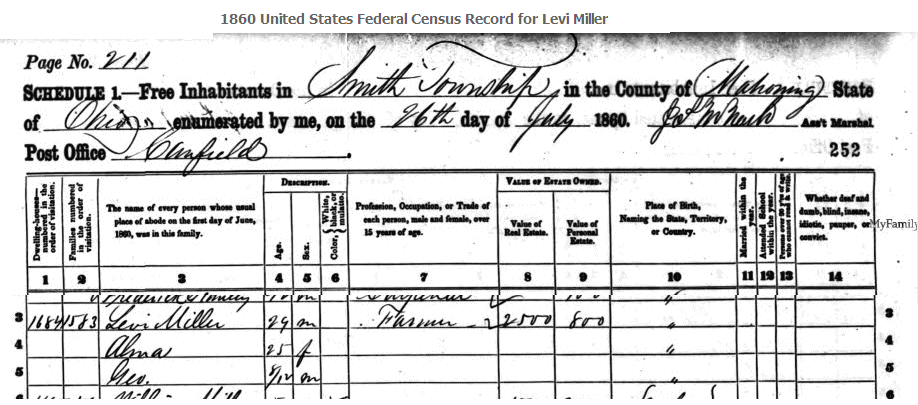 1860 United States Federal Census Record for Levi Miller
Page No. 211
SCHEDULE 1.—Free Inhabitants in Smith Township, in the County of Mahoning State
of Ohio enumerated by me, on the 26th day of July 1860. Ass't Marshal.
Post Office Canfield. 252
Dwelling-houses—numbered in the order of visitation.
Families numbered in the order of visitation.
The name of every person whose usual place of abode on the first day of June, 1860, was in this family.
DESCRIPTION.
Age.
Sex.
Color, White, black, or mulatto.
Profession, Occupation, or Trade of each person, male and female, over 15 years of age.
VALUE OF ESTATE OWNED.
Value of Real Estate.
Value of Personal Estate.
Place of Birth, Naming the State, Territory, or Country.
Married within the year.
Attended School within the year.
Persons over 20 y'rs of age who cannot read & write.
Whether deaf and dumb, blind, insane, idiotic, pauper, or convict.
MyFamily
1 2 3 4 5 6 7 8 9 10 11 12 13 14
3 1684 1583 Levi Miller 29 m Farmer 2500 800 " 3
4 Alma 25 f " 4
5 Geo. m " 5